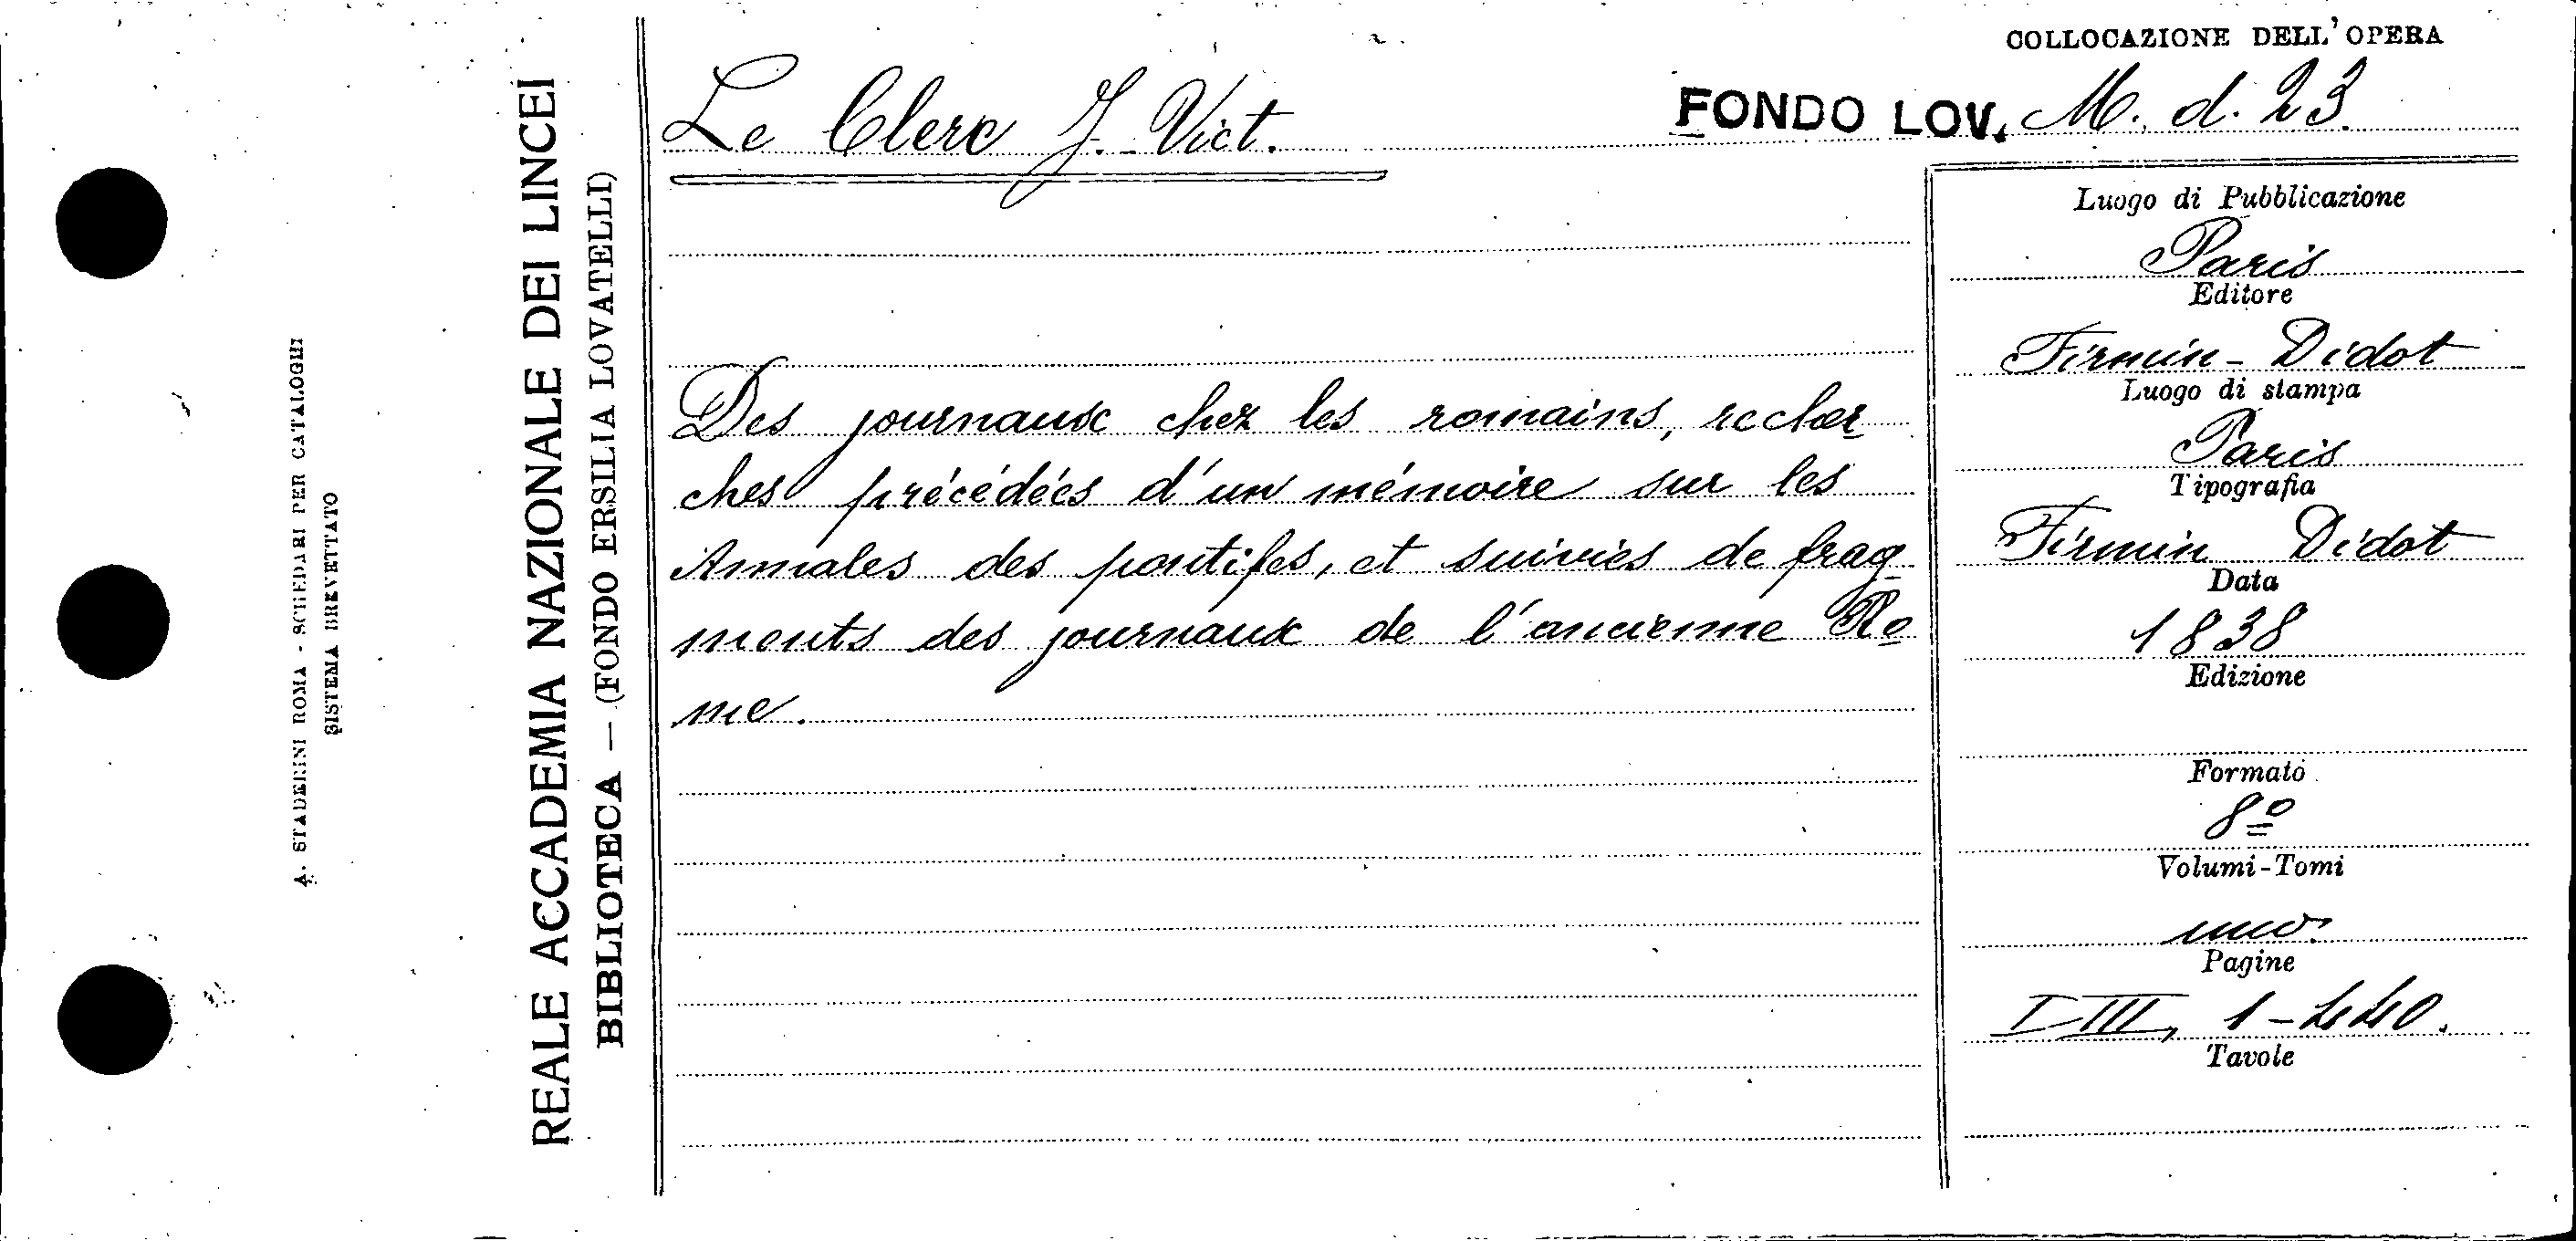 A. STADERINI ROMA - SCHEDARI PER CATALOGHI
SISTEMA BREVETTATO
REALE ACCADEMIA NAZIONALE DEI LINCEI
BIBLIOTECA — (FONDO ERSILIA LOVATELLI)
COLLOCAZIONE DELL'OPERA
FONDO LOV. M. d. 23
Le Clerc J. Vict.
Des journaux chez les romains, recher
ches précédées d'un mémoire sur les
Annales des pontifes, et suivies de frag
ments des journaux de l'ancienne Ro
me.
Luogo di Pubblicazione
Paris
Editore
Firmin-Didot
Luogo di stampa
Paris
Tipografia
Firmin Didot
Data
1838
Edizione
Formato
8º
Volumi-Tomi
uno.
Pagine
I-III, 1-440.
Tavole